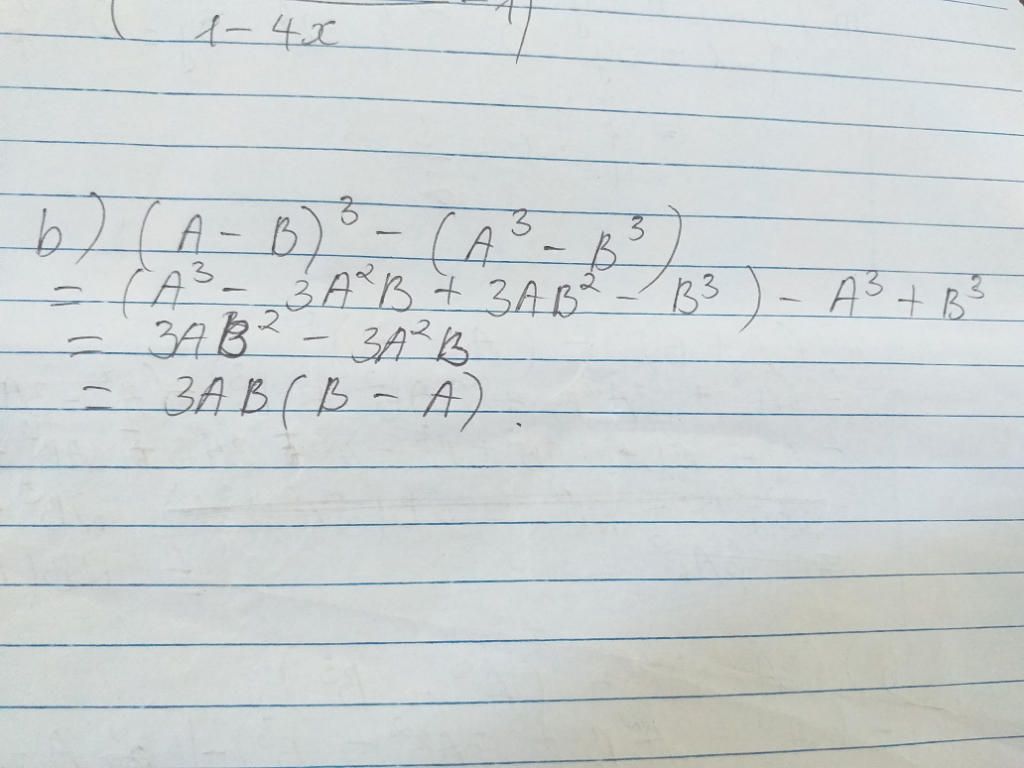 1 - 4x
b) (A - B)³ - (A³ - B³)
= (A³ - 3A²B + 3AB² - B³) - A³ + B³
= 3AB² - 3A²B
= 3AB(B - A).